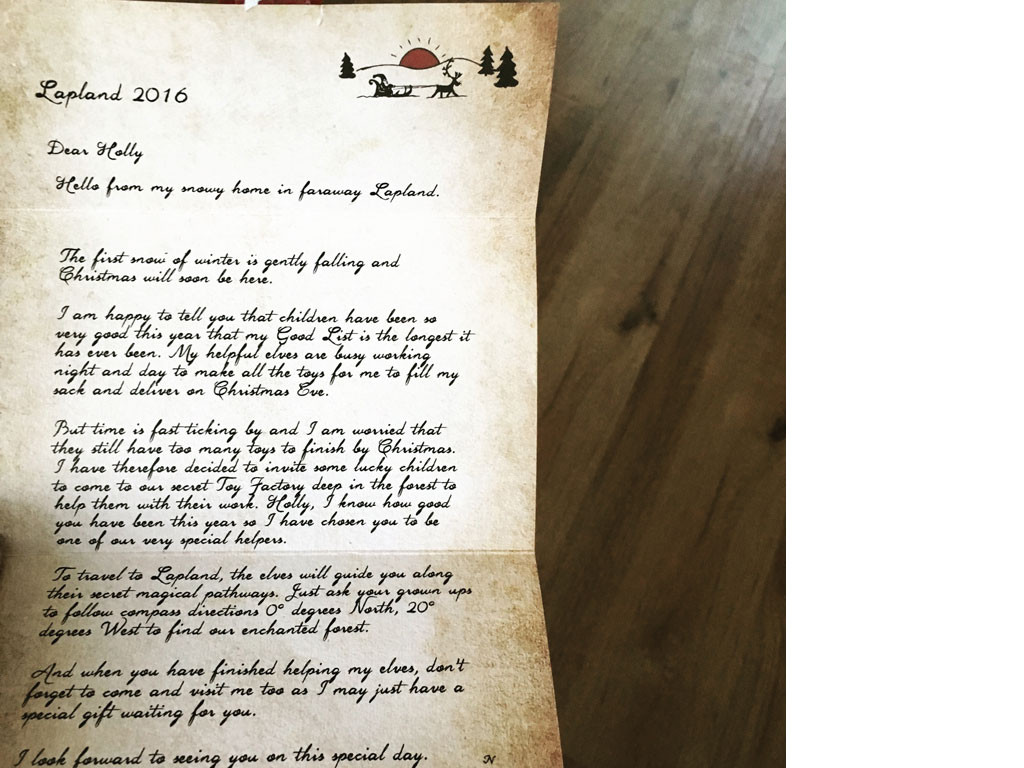 Lapland 2016
Dear Holly
Hello from my snowy home in faraway Lapland.
The first snow of winter is gently falling and
Christmas will soon be here.
I am happy to tell you that children have been so
very good this year that my Good List is the longest it
has ever been. My helpful elves are busy working
night and day to make all the toys for me to fill my
sack and deliver on Christmas Eve.
But time is fast ticking by and I am worried that
they still have too many toys to finish by Christmas.
I have therefore decided to invite some lucky children
to come to our secret Toy Factory deep in the forest to
help them with their work. Holly, I know how good
you have been this year so I have chosen you to be
one of our very special helpers.
To travel to Lapland, the elves will guide you along
their secret magical pathways. Just ask your grown ups
to follow compass directions 0° degrees North, 20°
degrees West to find our enchanted forest.
And when you have finished helping my elves, don't
forget to come and visit me too as I may just have a
special gift waiting for you.
I look forward to seeing you on this special day.
N